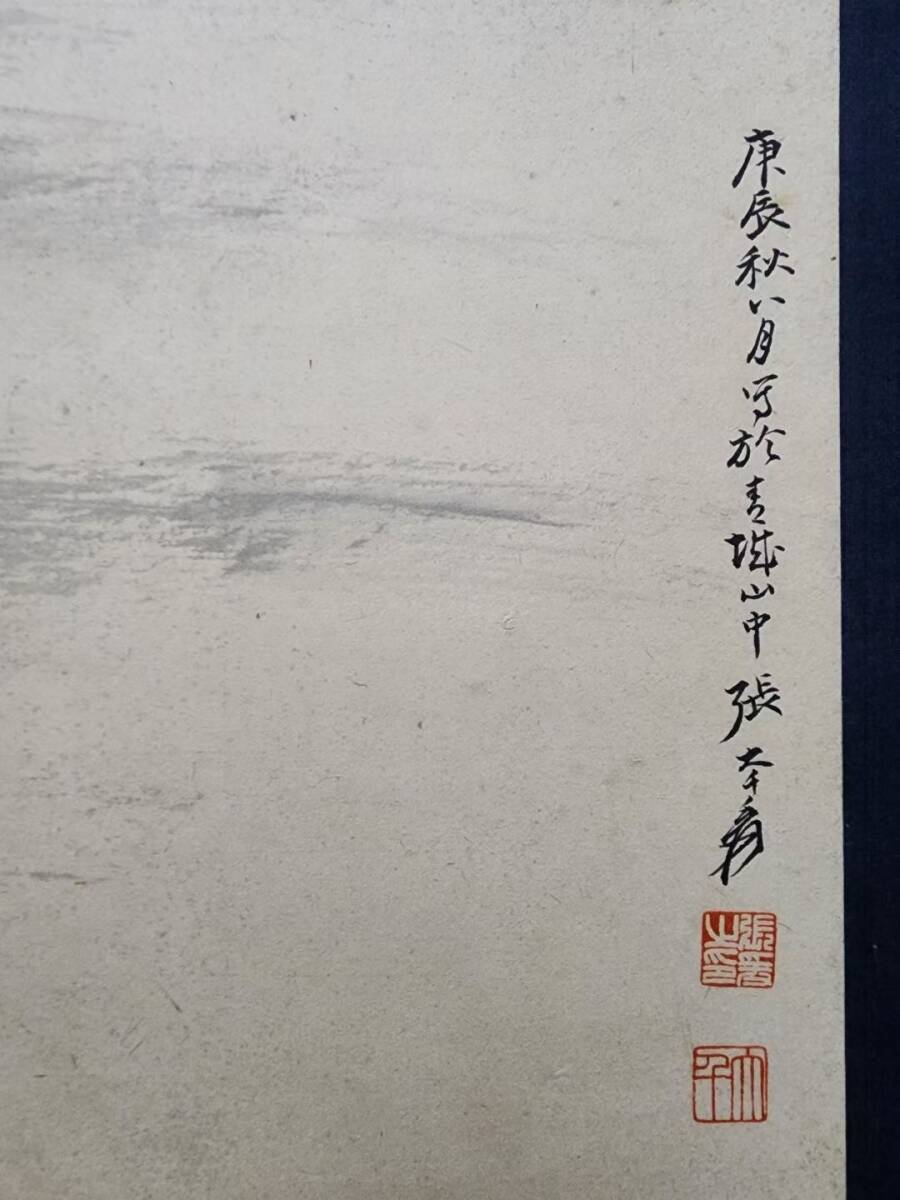 庚辰秋八月写於青城山中張大千爰
張爰之印
大千